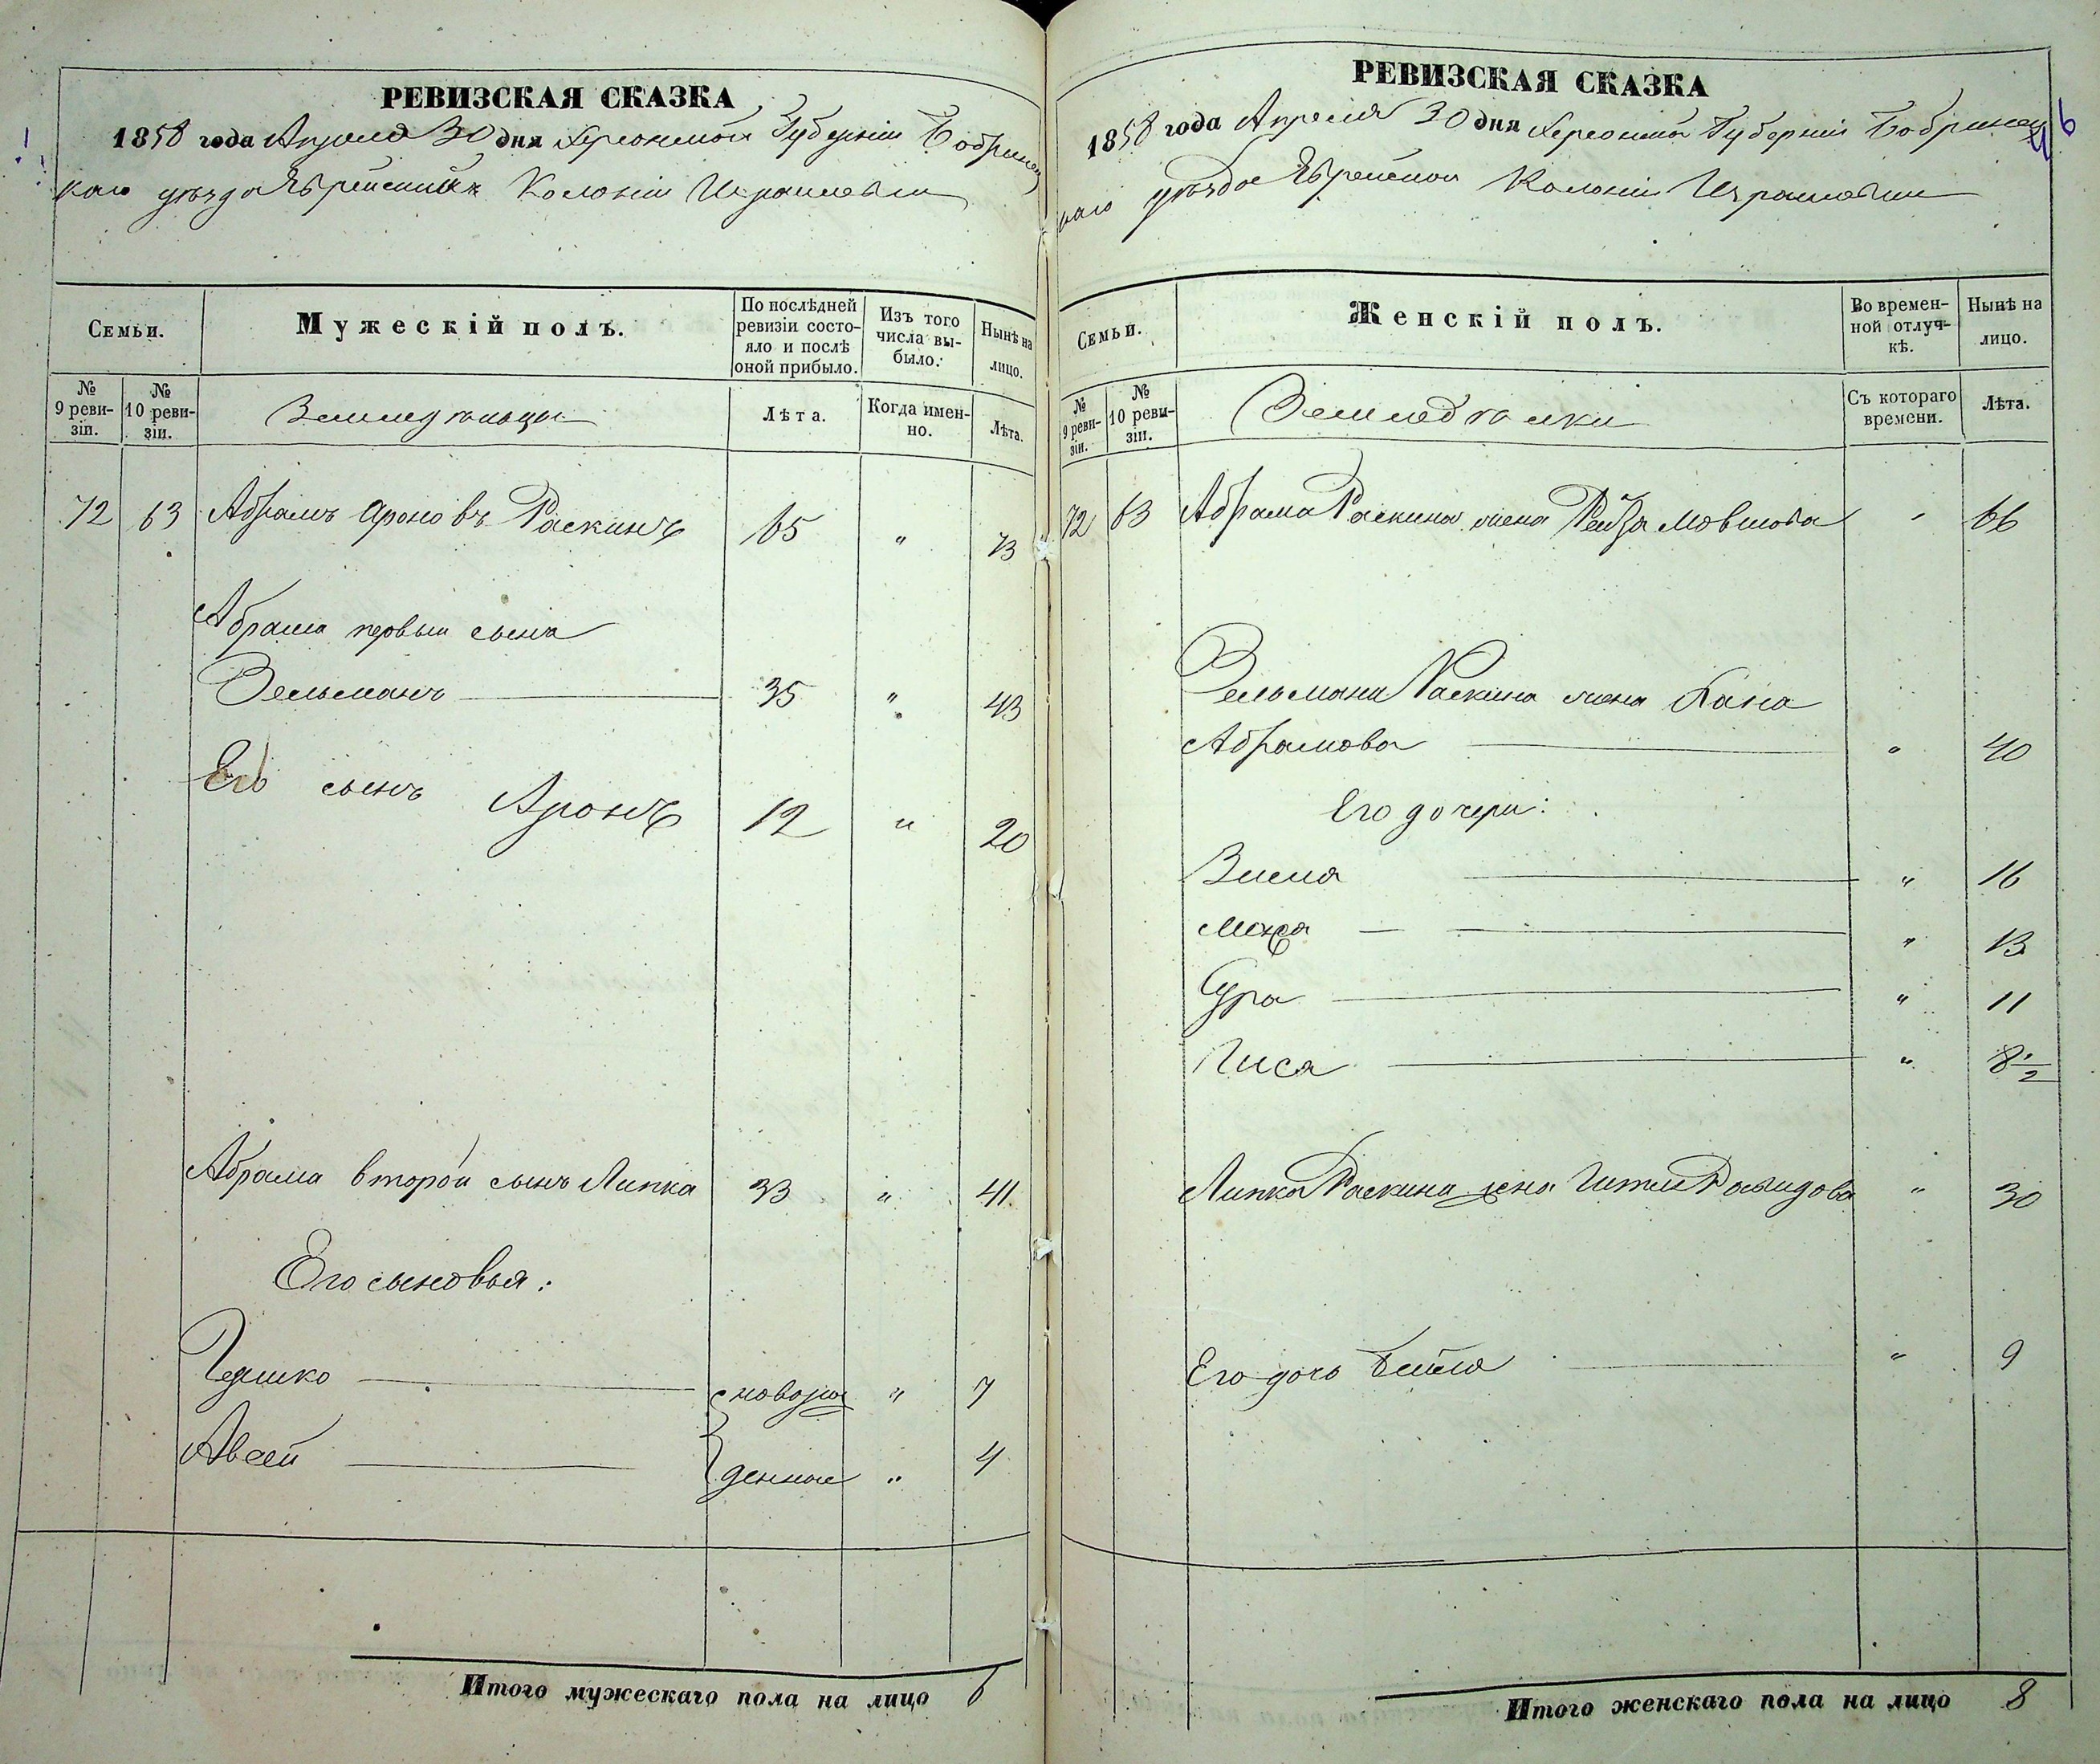 РЕВИЗСКАЯ СКАЗКА
1858 года Апреля 30 дня Херсонской Губерніи Бобринец
каго уѣзда Еврейской Колоніи Израилевки
Семьи.
Мужескій полъ.
По послѣдней ревизіи состояло и послѣ оной прибыло.
Изъ того числа выбыло:
Нынѣ на лицо.
№ 9 ревизіи.
№ 10 ревизіи.
Земледѣльцы
Лѣта.
Когда именно.
Лѣта.
72 63 Абрамъ Ароновъ Раскинъ 65 " 73
Абрама первый сынъ
Зельманъ 35 " 43
Его сынъ Аронъ 12 " 20
Абрама второй сынъ Липка 33 " 41
Его сыновья:
Гершко новорож " 7
Авсей денные " 4
Итого мужескаго пола на лицо 6
РЕВИЗСКАЯ СКАЗКА
1858 года Апреля 30 дня Херсонской Губерніи Бобринец
каго уѣзда Еврейской Колоніи Израилевки
Семьи.
Женскій полъ.
Во временной отлучкѣ.
Нынѣ на лицо.
№ 9 ревизіи.
№ 10 ревизіи.
Земледѣлки
Съ котораго времени.
Лѣта.
72 63 Абрама Раскина жена Рейза Мовшова " 66
Зельмана Раскина жена Хана
Абрамова " 40
Его дочери:
" 16
" 13
Сура " 11
" 8½
Липка Раскина жена Гитля " 30
Его дочь Бейля " 9
Итого женскаго пола на лицо 8